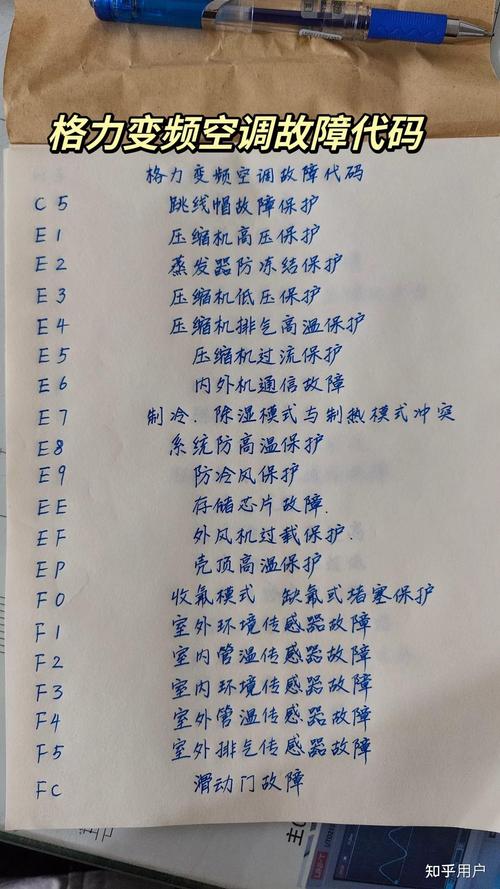 格力变频空调故障代码
格力变频空调故障代码
C5 跳线帽故障保护
E1 压缩机高压保护
E2 蒸发器防冻结保护
E3 压缩机低压保护
E4 压缩机排气高温保护
E5 压缩机过流保护
E6 内外机通信故障
E7 制冷.除湿模式与制热模式冲突
E8 系统防高温保护
E9 防冷风保护
EE 存储芯片故障.
EF 外风机过载保护.
EP 壳顶高温保护
F0 收氟模式 缺氟式堵塞保护
F1 室外环境传感器故障
F2 室内管温传感器故障
F3 室内环境传感器故障
F4 室外管温传感器故障
F5 室外排气传感器故障
FC 滑动门故障
知乎用户